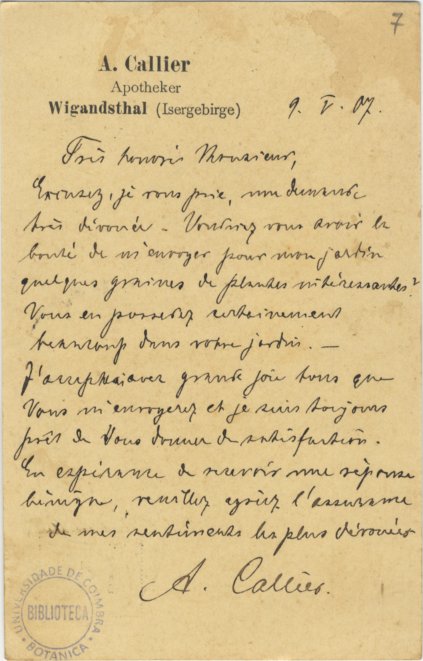 7
A. Callier
Apotheker
Wigandsthal (Isergebirge)
9. V. 07.
Très honoré Monsieur,
Excusez, je vous prie, une demande
très dévouée. Voudriez vous avoir la
bonté de m'envoyer pour mon jardin
quelques graines de plantes intéressantes?
Vous en possedez certainement
beaucoup dans votre jardin. —
J'accepterai avec grande joie tous que
Vous m'envoyerez et je suis toujours
prêt de Vous donner de satisfaction.
En espérance de recevoir une réponse
bénigne, veuillez l'assurance
de mes sentiments les plus dévoués
A. Callier.
UNIVERSIDADE DE COIMBRA
BIBLIOTECA
BOTANICA